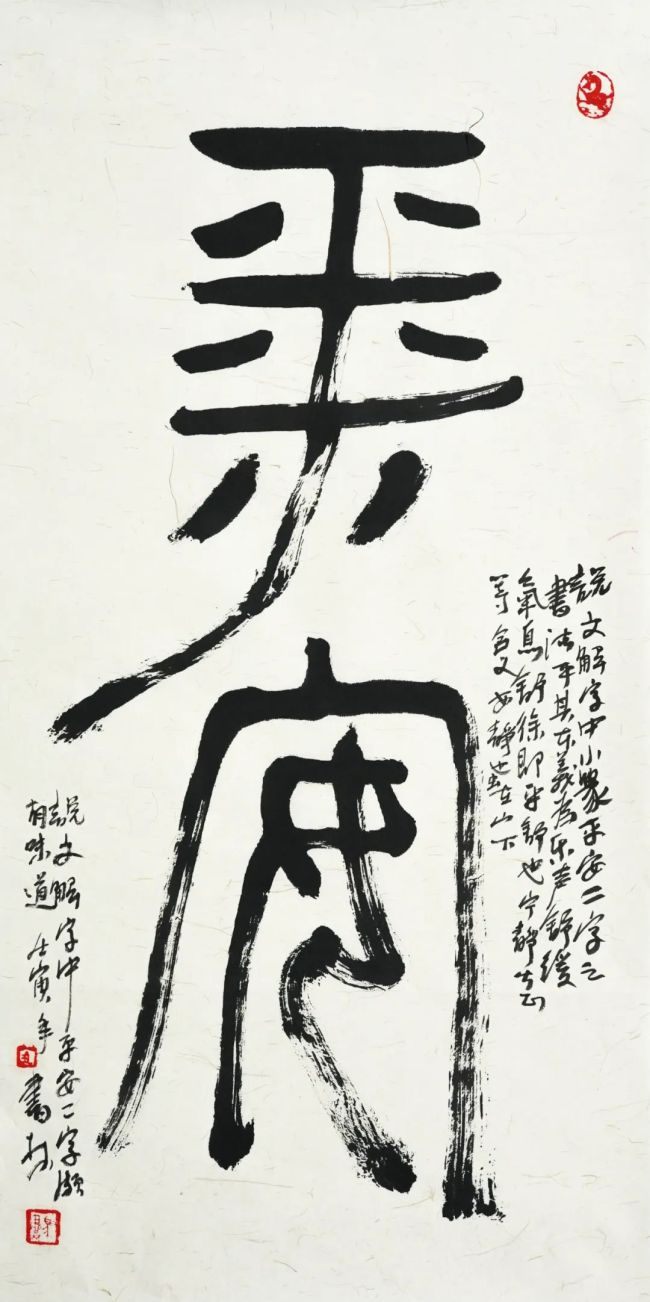 平安
說文解字中小篆平安二字之
書法平其本義為樂声舒緩
氣息舒徐即平舒也宁靜
等含义安靜也在山下
說文解字中平安二字頗
有味道 壬寅年書